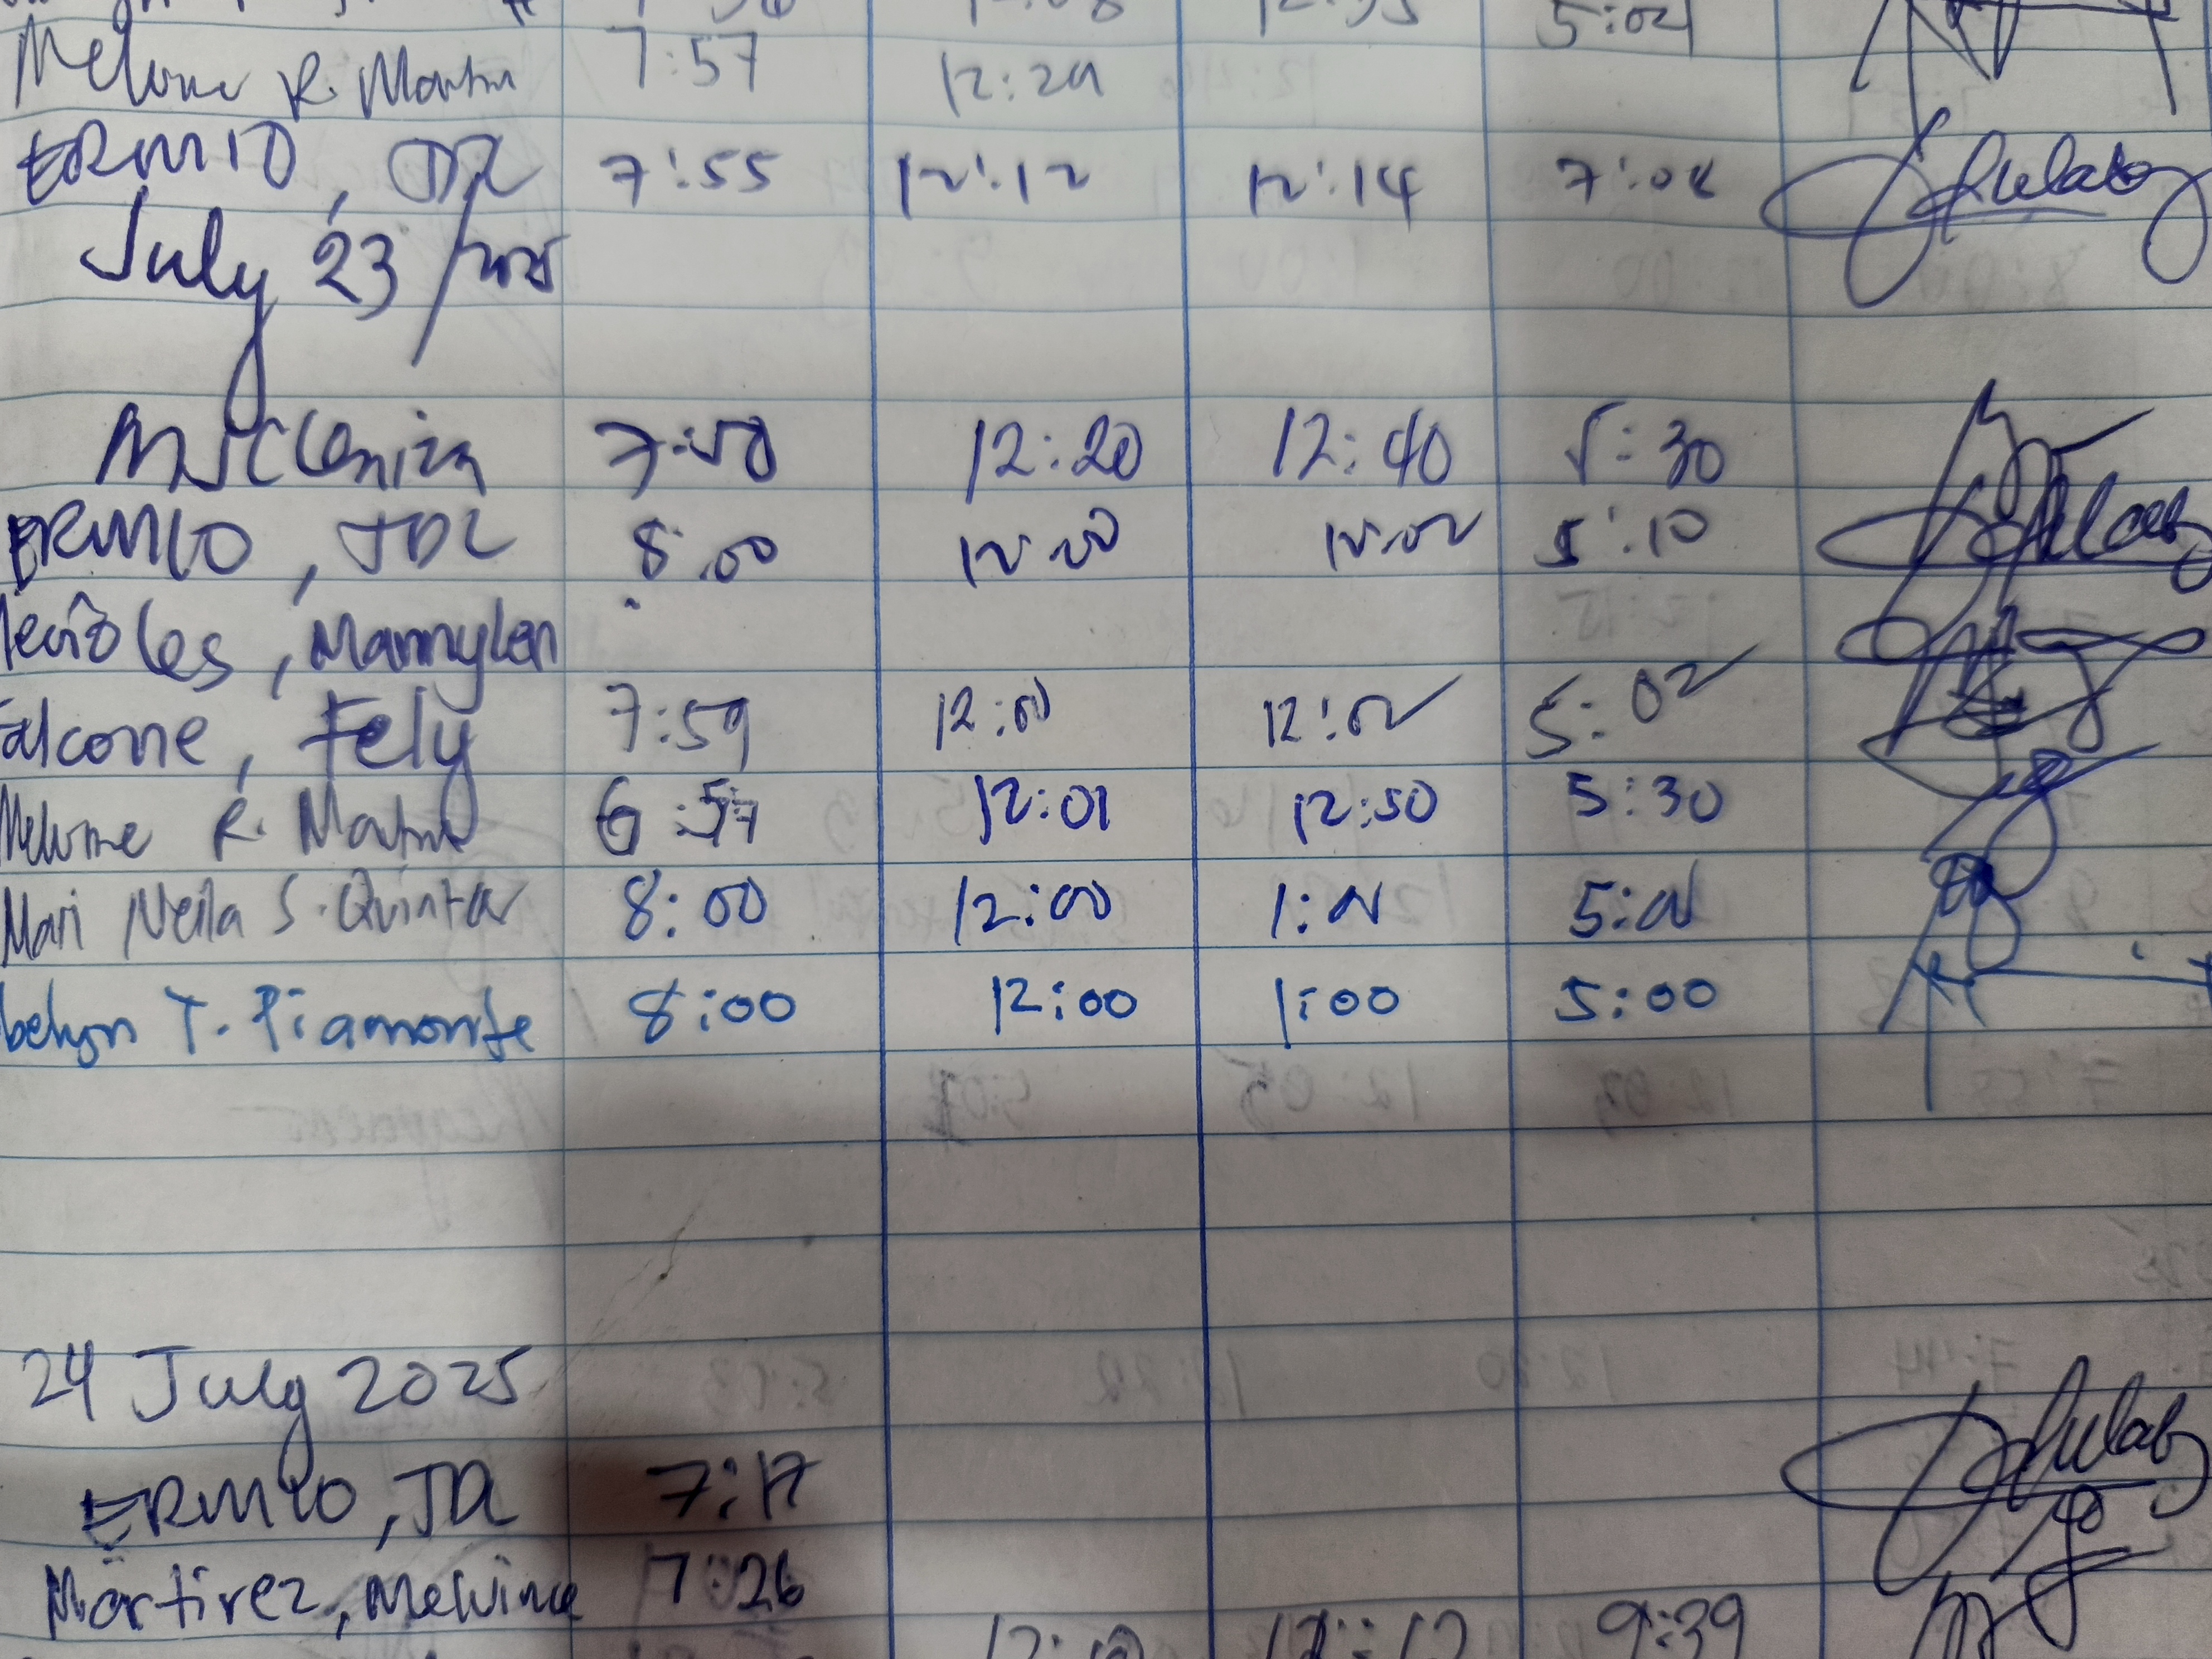 5:02
Melvine R. Martin 7:57 12:29
ERMIO, JDL 7:55 12:12 12:14 7:08
July 23, 2025
7:50 12:20 12:40 5:30
ERMIO, JDL 8:00 12:00 12:02 5:10
Marmylen
Falcone, Fely 7:59 12:00 12:02 5:02
Melvine R. 6:57 12:01 12:50 5:30
Mari Neila S. Quinta 8:00 12:00 1:00 5:00
belyn T. Piamonte 8:00 12:00 1:00 5:00
24 July 2025
ERMIO, JDL 7:17
Martirez, Melvine 7:26
9:39